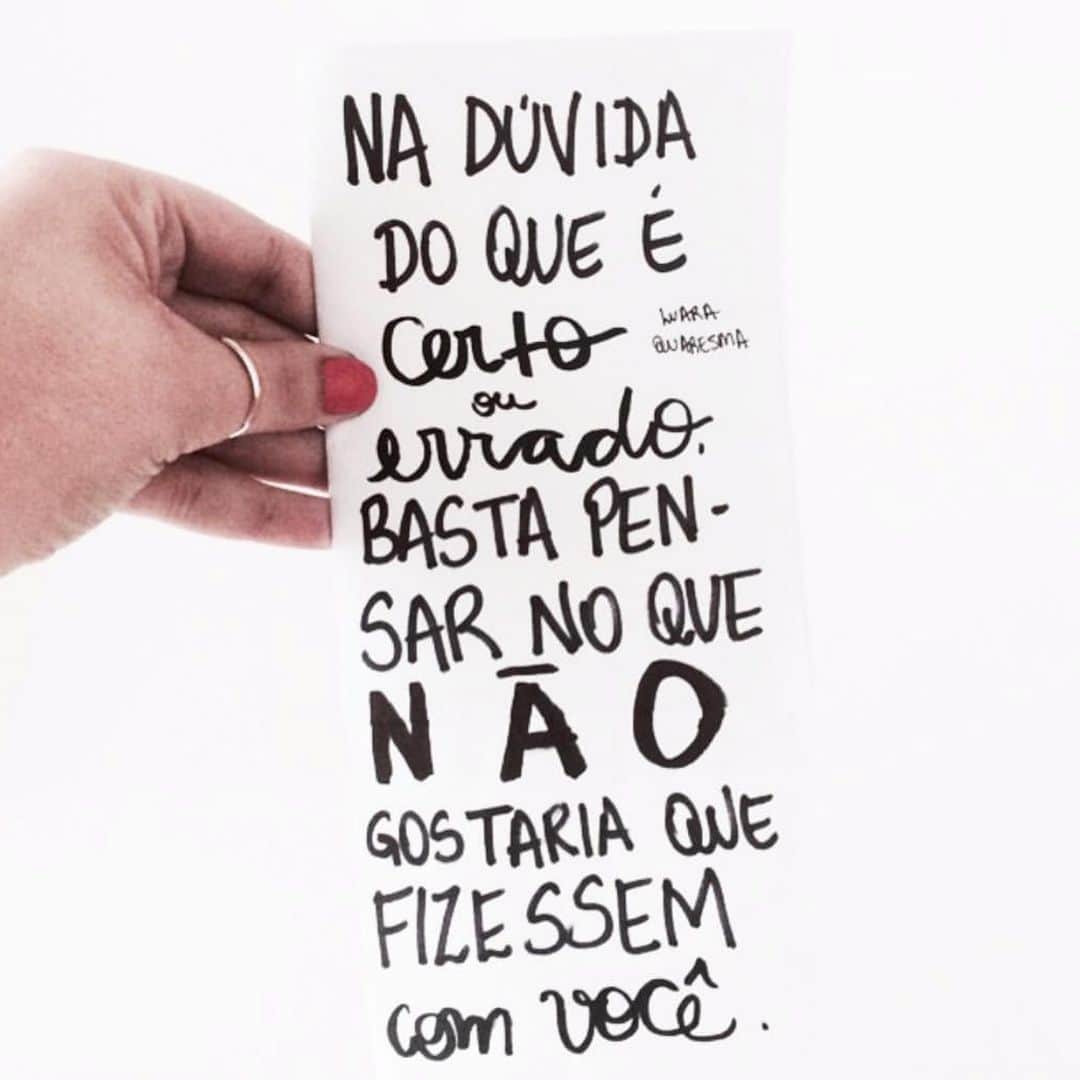 NA DÚVIDA
DO QUE É
certo
LUARA
QUARESMA
ou
errado.
BASTA PEN-
SAR NO QUE
NÃO
GOSTARIA QUE
FIZESSEM
com você.